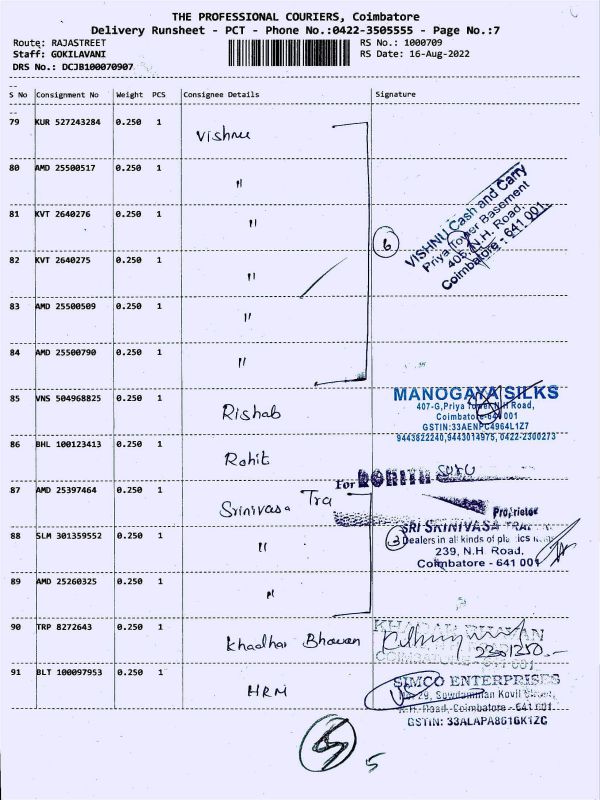 THE PROFESSIONAL COURIERS, Coimbatore
Delivery Runsheet - PCT - Phone No.:0422-3505555 - Page No.:7
Route: RAJASTREET RS No.: 1000709
Staff: GOKILAVANI RS Date: 16-Aug-2022
DRS No.: DCJB100070907
S No Consignment No Weight PCS Consignee Details Signature
79 KUR 527243284 0.250 1 Vishnu
80 AMD 25500517 0.250 1 "
81 KVT 2640276 0.250 1 "
82 KVT 2640275 0.250 1 "
83 AMD 25500509 0.250 1 "
84 AMD 25500790 0.250 1 "
6
VISHNU Cash and Carry
Priya Tower Basement
405, N.H. Road,
Coimbatore - 641 001
85 VNS 504968825 0.250 1 Rishab
MANOGAYA SILKS
407-G, Priya Tower, N.H Road,
Coimbatore-641 001
GSTIN:33AENPC4964L1Z7
9443822240,9443014975, 0422-2300273
86 BHL 100123413 0.250 1 Rohit
For
Proprietor
87 AMD 25397464 0.250 1 Srinivasa Tra
88 SLM 301359552 0.250 1 "
89 AMD 25260325 0.250 1 "
3
SRI SRINIVASA
Dealers in all kinds of
239, N.H. Road,
Coimbatore - 641 001
90 TRP 8272643 0.250 1 Khadhai Bhavan
BHAVAN
COIMBATORE - 641 001
91 BLT 100097953 0.250 1 HRM
SIMCO ENTERPRISES
No 29, Sowdamman Kovil Street,
N.H. Road, Coimbatore - 641 001
GSTIN: 33ALAPA8616K1ZC
5